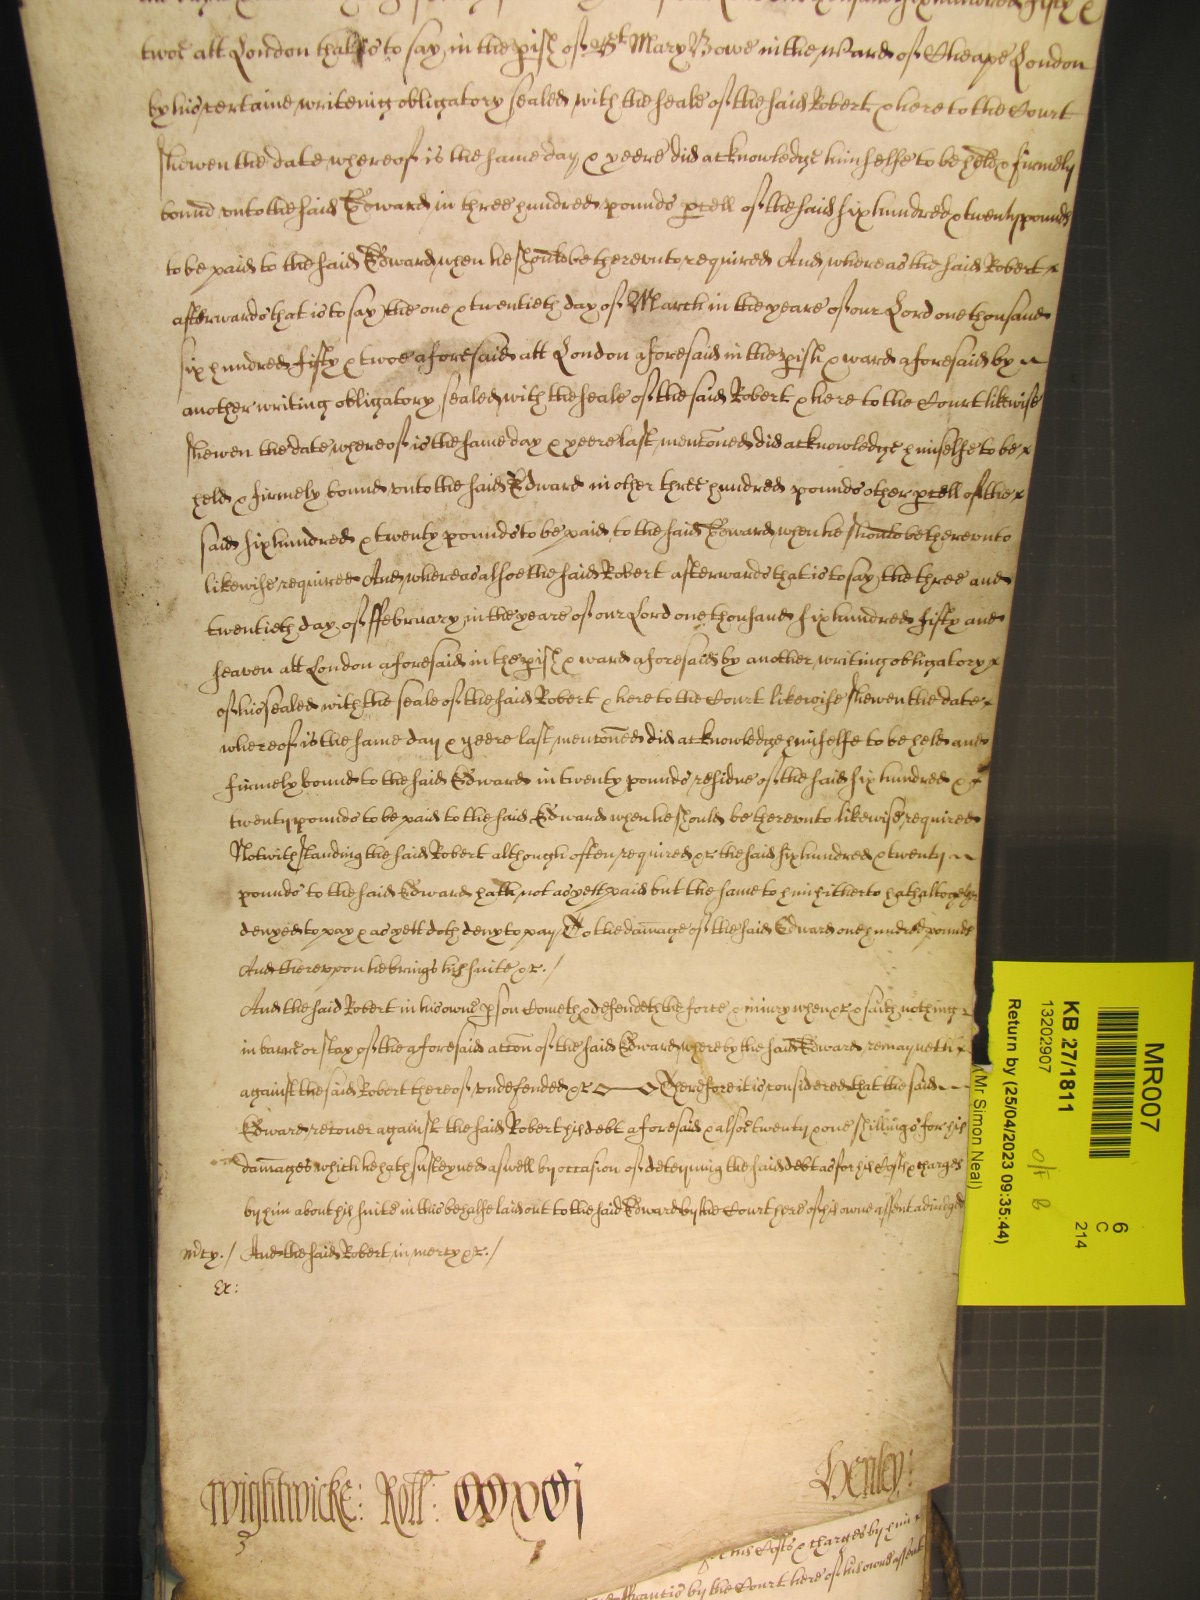 twoe att London that is to say in the pish of St Mary Bowe in the Ward of Cheape London
by his certaine writeing obligatory sealed with the seale of the said Robert & here to the Court
shewen the date whereof is the same day & yeere did acknowledge himselfe to be held & firmely
bound unto the said Edward in three hundred pounds pcell of the said six hundred & twenty pounds
to be paid to the said Edward when he should be thereunto required And whereas the said Robert
afterwards that is to say the one & twentieth day of March in the yeare of our Lord one thousand
six hundred fifty & twoe aforesaid att London aforesaid in the pish & ward aforesaid by
another writing obligatory sealed with the seale of the said Robert & here to the Court likewise
shewen the date whereof is the same day & yeere last mentoned did acknowledge himselfe to be
held & firmely bound unto the said Edward in other three hundred pounds other pcell of the
said six hundred & twenty pounds to be paid to the said Edward when he should be thereunto
likewise required And whereas alsoe the said Robert afterwards that is to say the three and
twentieth day of ffebruary in the yeare of our Lord one thousand six hundred fifty and
seaven att London aforesaid in the pish & ward aforesaid by another writing obligatory
of his sealed with the seale of the said Robert & here to the Court likewise shewen the date
whereof is the same day & yeere last mentoned did acknowledge himselfe to be held and
firmely bound to the said Edward in twenty pounds residue of the said six hundred &
twenty pounds to be paid to the said Edward when he should be thereunto likewise required
Notwithstanding the said Robert although often required &c the said six hundred & twenty
pounds to the said Edward hath not as yett paid but the same to him hitherto hath altogether
denyed to pay & as yett doth deny to pay To the damage of the said Edward one hundred pounds
And thereupon he brings his suite &c./
And the said Robert in his owne pson Cometh & defendeth the force & iniury when &c & saith nothing
in barre or stay of the aforesaid accon of the said Edward whereby the said Edward remayneth
against the said Robert thereof undefended &c Therefore it is considered that the said
Edward recover against the said Robert his debt aforesaid & alsoe twenty & one shillings for his
damages which he hath susteyned aswell by occasion of deteyning the said debt as for his Costs & charges
by him about his suite in this behalfe laid out to the said Edward by the Court here of his owne assent adiudged
m̄cy./ And the said Robert in mercy &c./
Ex:
Wightwicke: Roll:
Henley:
his Costs & charges by him
by the Court here of his owne assent
MR007
6
C
214
KB 27/1811
13202907
Return by (25/04/2023 09:35:44)
(Mr Simon Neal)